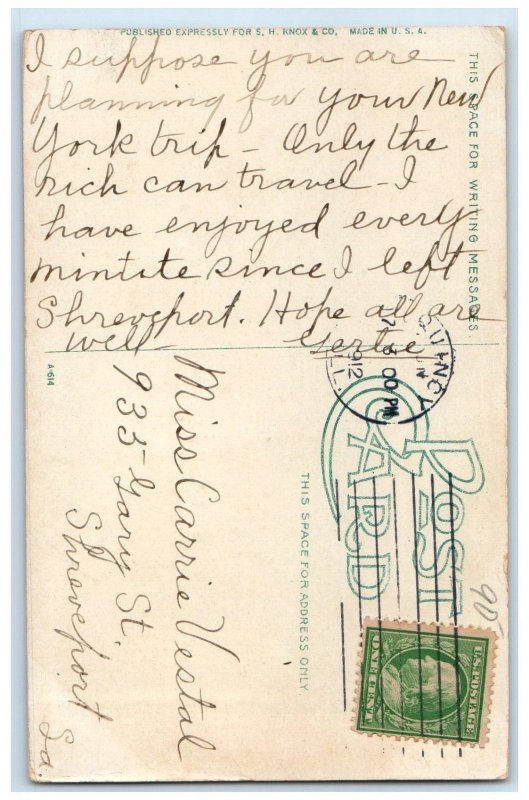 PUBLISHED EXPRESSLY FOR S. H. KNOX & CO. MADE IN U. S. A.
I suppose you are
planning for your New
York trip - Only the
rich can travel - I
have enjoyed every
mintite since I left
Shreveport. Hope all are
well Gertie
THIS SPACE FOR WRITING MESSAGES
A-614
QUINCY
ILL.
00 PM
1912
POST
CARD
THIS SPACE FOR ADDRESS ONLY
Miss Carrie Vestal
935 Gary St.
Shreveport
La.
90
U.S. POSTAGE
ONE CENT